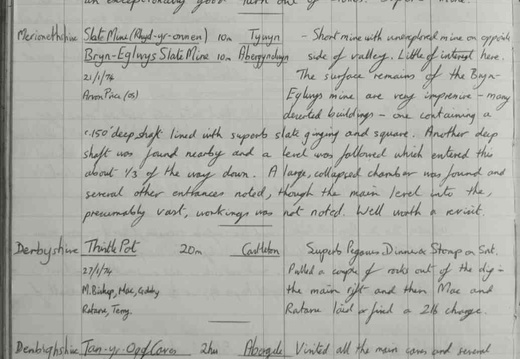 an exceptionally good turn out of
Merionethshire Slate Mine (Rhyd-yr-onnen) 10m Tywyn - Short mine with unexplored mine on opposite
Bryn-Eglwys Slate Mine 10m Abergynolwyn side of valley. Little of interest here.
21/1/74 The surface remains of the Bryn-
Arvon Price (OS) Eglwys mine are very impressive - many
deserted buildings - one containing a
c.150' deep shaft lined with superb slate ginging and square. Another deep
shaft was found nearby and a level was followed which entered this
about 1/3 of the way down. A large, collapsed chamber was found and
several other entrances noted, though the main level into the,
presumably vast, workings was not noted. Well worth a revisit.
Derbyshire Thistle Pot 20m Castleton Superb Pegasus Dinner & Stomp on Sat.
27/1/74 Pulled a couple of rocks out of the dig -
M. Bishop, Mac, the main rift and then Mac and
Ratane, Terry. Ratane laid & fired a 2lb charge.
Denbighshire Tan-yr-Ogof Caves 2hrs Abergele Visited all the main caves and several